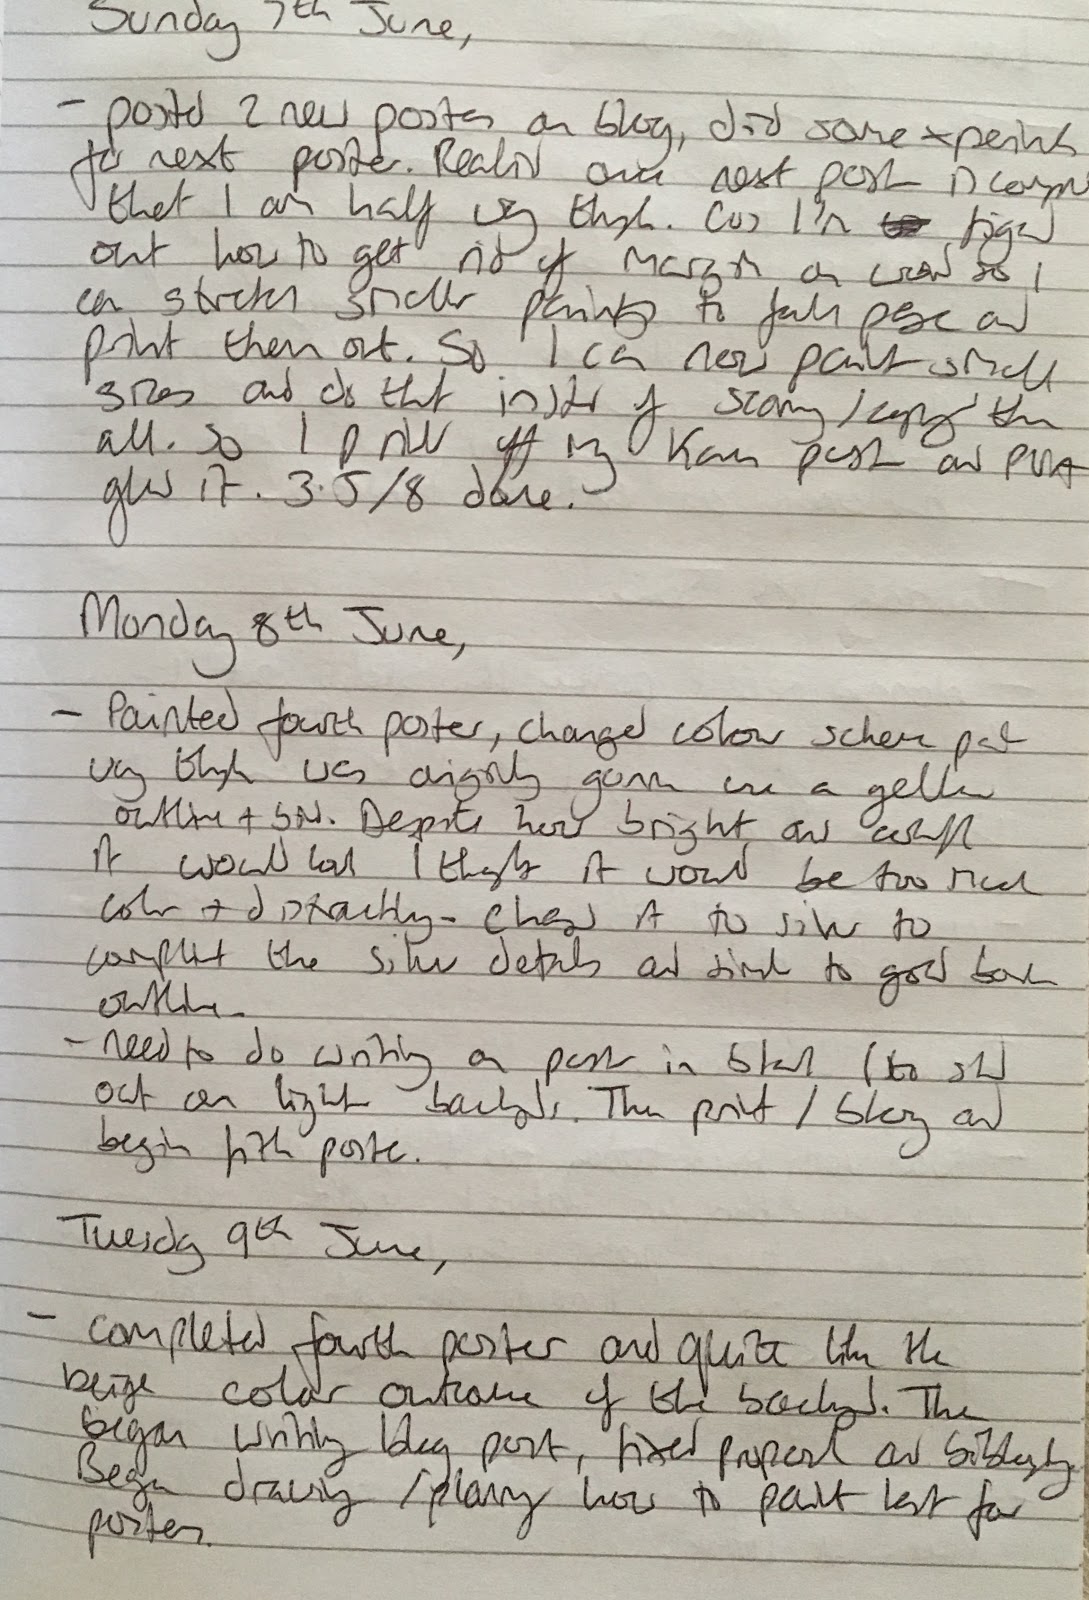 Sunday 7th June,
- posted 2 new posters on blog, did some experiments
for next poster. Realised once next post is complete
that I am half way through. Cos I'm figured
out how to get rid of margin on word so I
can stretch smaller paintings to full page and
print them out. So I can now paint small
sizes and do that instead of scanning/copying them
all. So I print off my Kann post and PVA
glued it. 3.5/8 done.
Monday 8th June,
- Painted fourth poster, changed colour scheme part
way through was originally gunna use a yellow
outline + bits. Despite how bright and
it would look I thought it would be too much
color + distracting - changed it to silver to
compliment the silver details and similar to gold book
outline.
- need to do writing on post in black (to stand
out on light background. Then print / blog and
begin fifth poster.
Tuesday 9th June,
- completed fourth poster and quite like the
beige color outcome of the background. Then
began writing blog post, fixed proposal and bibliography.
Began drawing / planning how to paint last four
posters.